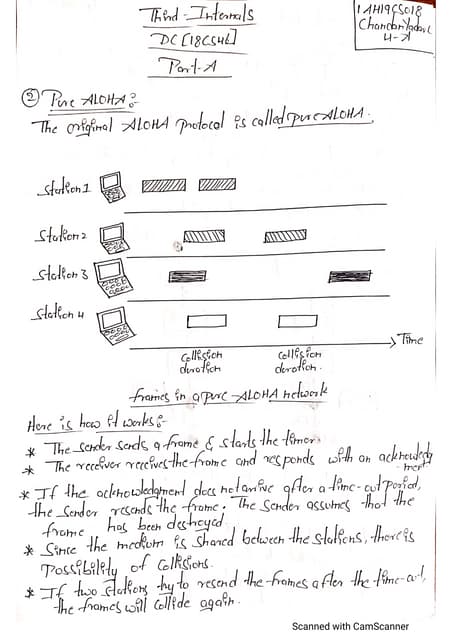 Third-Internals
DC [18CS46]
Part-A
1AH19CS018
4-A
② Pure ALOHA :-
The original ALOHA protocol is called pure ALOHA.
Station 1
Station 2
Station 3
Station 4
Time
Collision
duration
Collision
duration.
frames in a pure-ALOHA network
Here is how it works :-
* The sender sends a frame & starts the timer.
* The receiver receives the frame and responds with an acknowledgment
* If the acknowledgment does not arrive after a time-out period,
the sender resends the frame. The sender assumes that the
frame has been destroyed.
* Since the medium is shared between the stations, there is
possibility of collisions.
* If two stations try to resend the frames after the time-out,
the frames will collide again.
Scanned with CamScanner